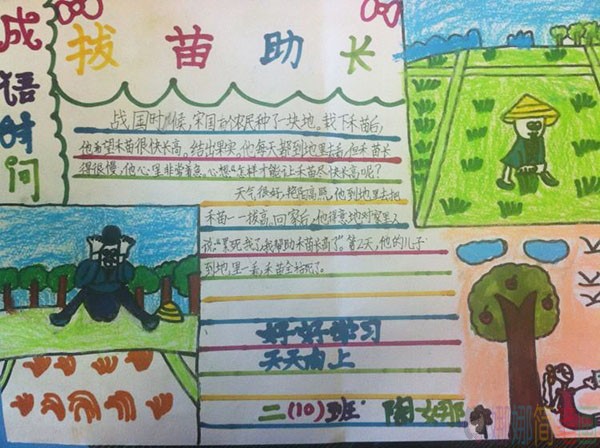 成语时间
拔苗助长
战国时候,宋国的农民种了一块地。栽下禾苗后,
他希望禾苗很快长高。结出果实。他每天都到地里去看,但禾苗长
得很慢,他心里非常着急,心想“怎样才能让禾苗尽快长高呢?
天气很好,艳阳高照,他到地里去把
禾苗一一拔高,回家后,他得意地对家里人
说“累死我了,我帮助禾苗长高了”。第2天,他的儿子
到地里一看,禾苗全枯死了。
好好学习
天天向上
二(10)班 陶娜